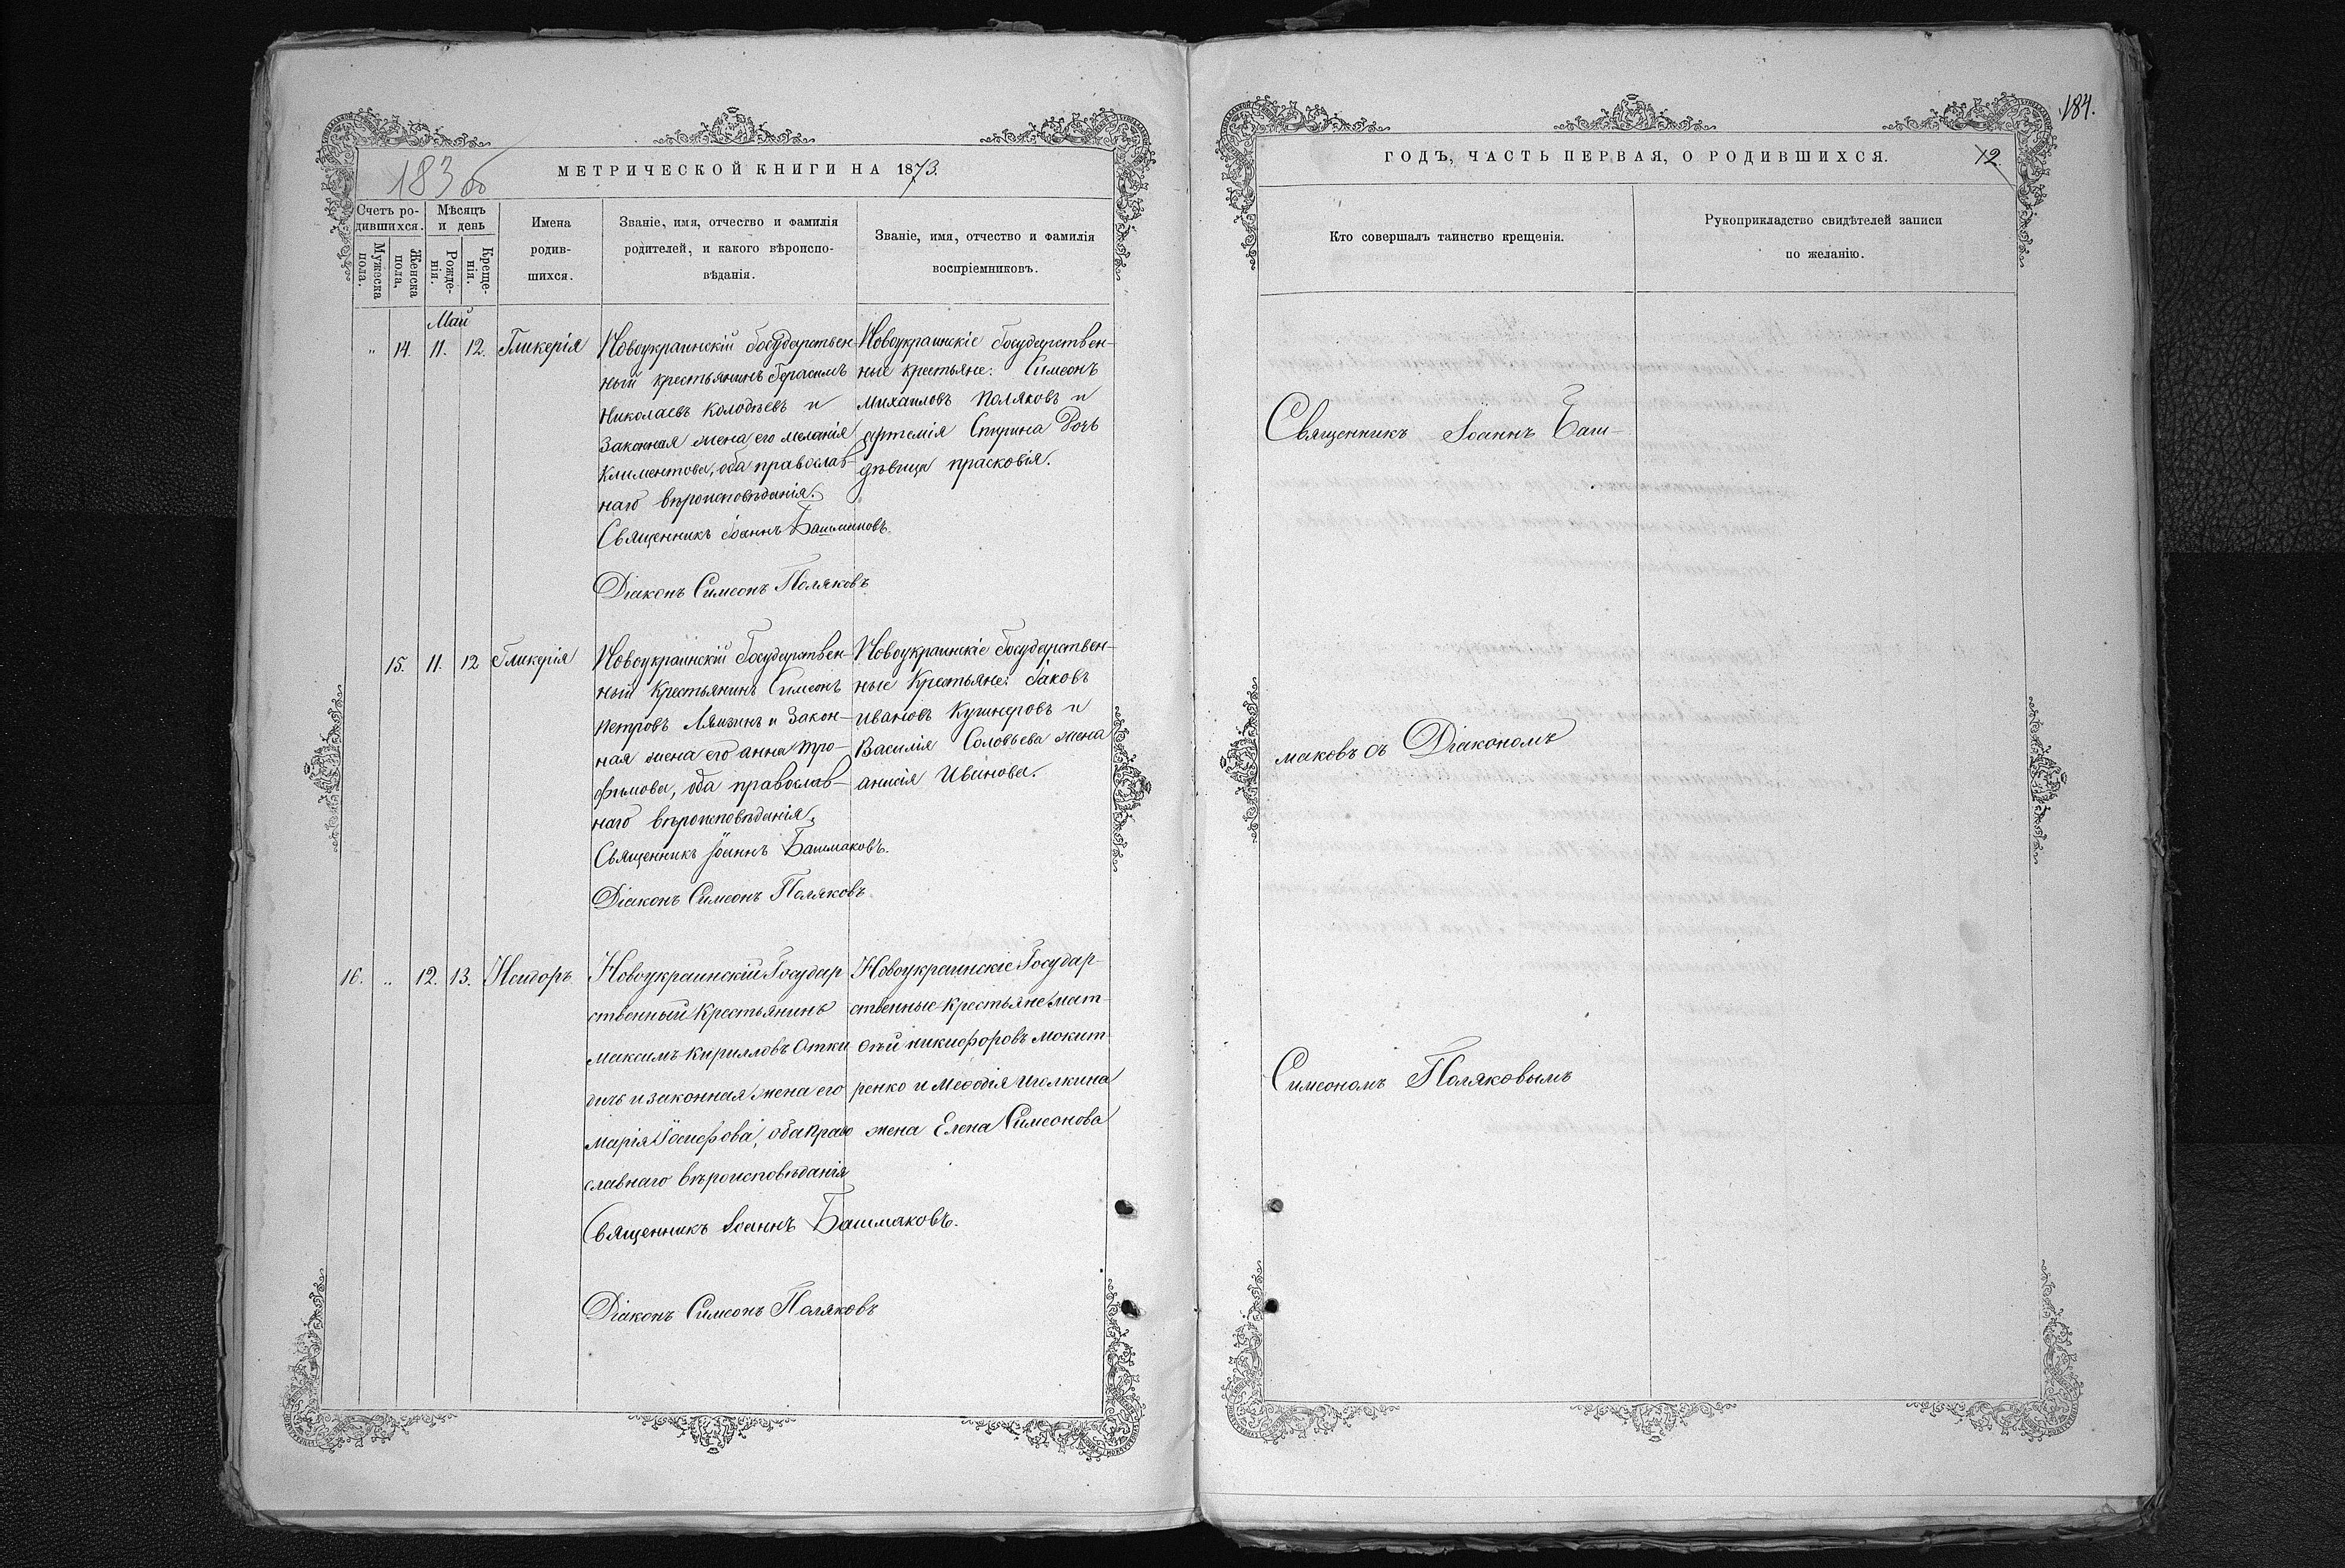 183 об
МЕТРИЧЕСКОЙ КНИГИ НА 1873.
Счетъ ро-
дившихся.
Мужеска
пола.
Женска
пола.
Мѣсяцъ
и день
Рожде-
нія.
Креще-
нія.
Имена
родив-
шихся.
Званіе, имя, отчество и фамилія
родителей, и какого вѣроиспо-
вѣданія.
Званіе, имя, отчество и фамилія
воспріемниковъ.
Май
" 14. 11. 12. Гликерія
Новоукраинскій Государствен-
ный крестьянинъ Герасимъ
Николаевъ Колодѣевъ и
Законная жена его меланія
Климентова, оба православ-
наго вѣроисповѣданія.
Священникъ Іоаннъ Башмаковъ.
Діаконъ Симеонъ Поляковъ
Новоукраинскіе Государствен-
ные крестьяне: Симеонъ
Михаиловъ Поляковъ и
артемія Спирина Дочь
дѣвица прасковія.
15. 11. 12 Гликерія
Новоукраинскій Государствен-
ный Крестьянинъ Симеонъ
Петровъ Лямзинъ и Закон-
ная жена его анна Тро-
фимова, оба православ-
наго вѣроисповѣданія.
Священникъ Іоаннъ Башмаковъ.
Діаконъ Симеонъ Поляковъ.
Новоукраинскіе Государствен-
ные Крестьяне: Іаковъ
ивановъ Кушнеровъ и
Василія Соловьева жена
анисія Иванова.
16. " 12. 13. Исидоръ
Новоукраинскій Государ
ственный Крестьянинъ
максимъ Кирилловъ Отки
дичь и законная жена его
марія Іосифова, оба право
славнаго вѣроисповѣданія
Священникъ Іоаннъ Башмаковъ.
Діаконъ Симеонъ Поляковъ
Новоукраинскіе Государ-
ственные крестьяне мат-
ѳѣй никифоровъ мокит
ренко и Меѳодія иголкина
жена Елена Симеонова
184.
ГОДЪ, ЧАСТЬ ПЕРВАЯ, О РОДИВШИХСЯ.
12.
Кто совершалъ таинство крещенія.
Рукоприкладство свидѣтелей записи
по желанію.
Священникъ Іоаннъ Баш-
маковъ съ Діакономъ
Симеономъ Поляковымъ